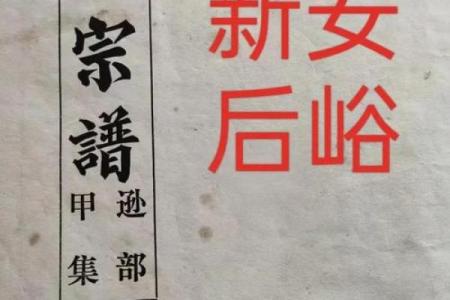 宗譜
遜部
甲集
新安
后峪